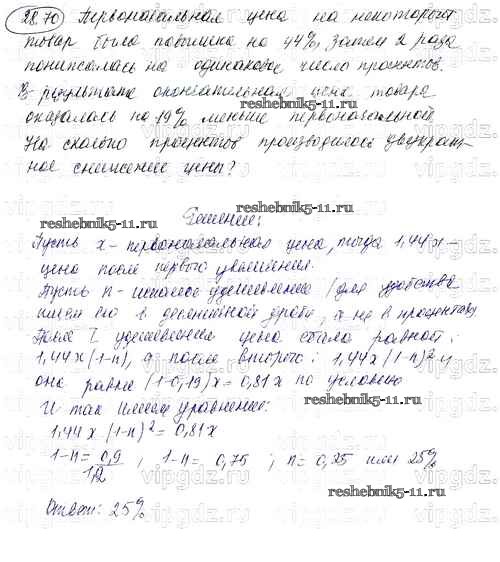 28.70 Первоначальная цена на некоторый
товар была повышена на 44%, затем 2 раза
понижалась на одинаковое число процентов.
В результате окончательная цена товара
оказалась на 19% меньше первоначальной.
На сколько процентов производилось двукрат-
ное снижение цены?
reshebnik5-11.ru
Решение:
Пусть x - первоначальная цена, тогда 1,44x -
цена после первого увеличения.
Пусть n - искомое удешевление (для удобства
ищем его в десятичной дроби, а не в процентах)
После I удешевления цена стала равной:
1,44x(1-n), а после второго: 1,44x(1-n)² и
она равна (1-0,19)x = 0,81x по условию
Итак имеем уравнение:
1,44x(1-n)² = 0,81x
1-n = 0,9/1,2 ; 1-n = 0,75 ; n = 0,25 или 25%
Ответ: 25%